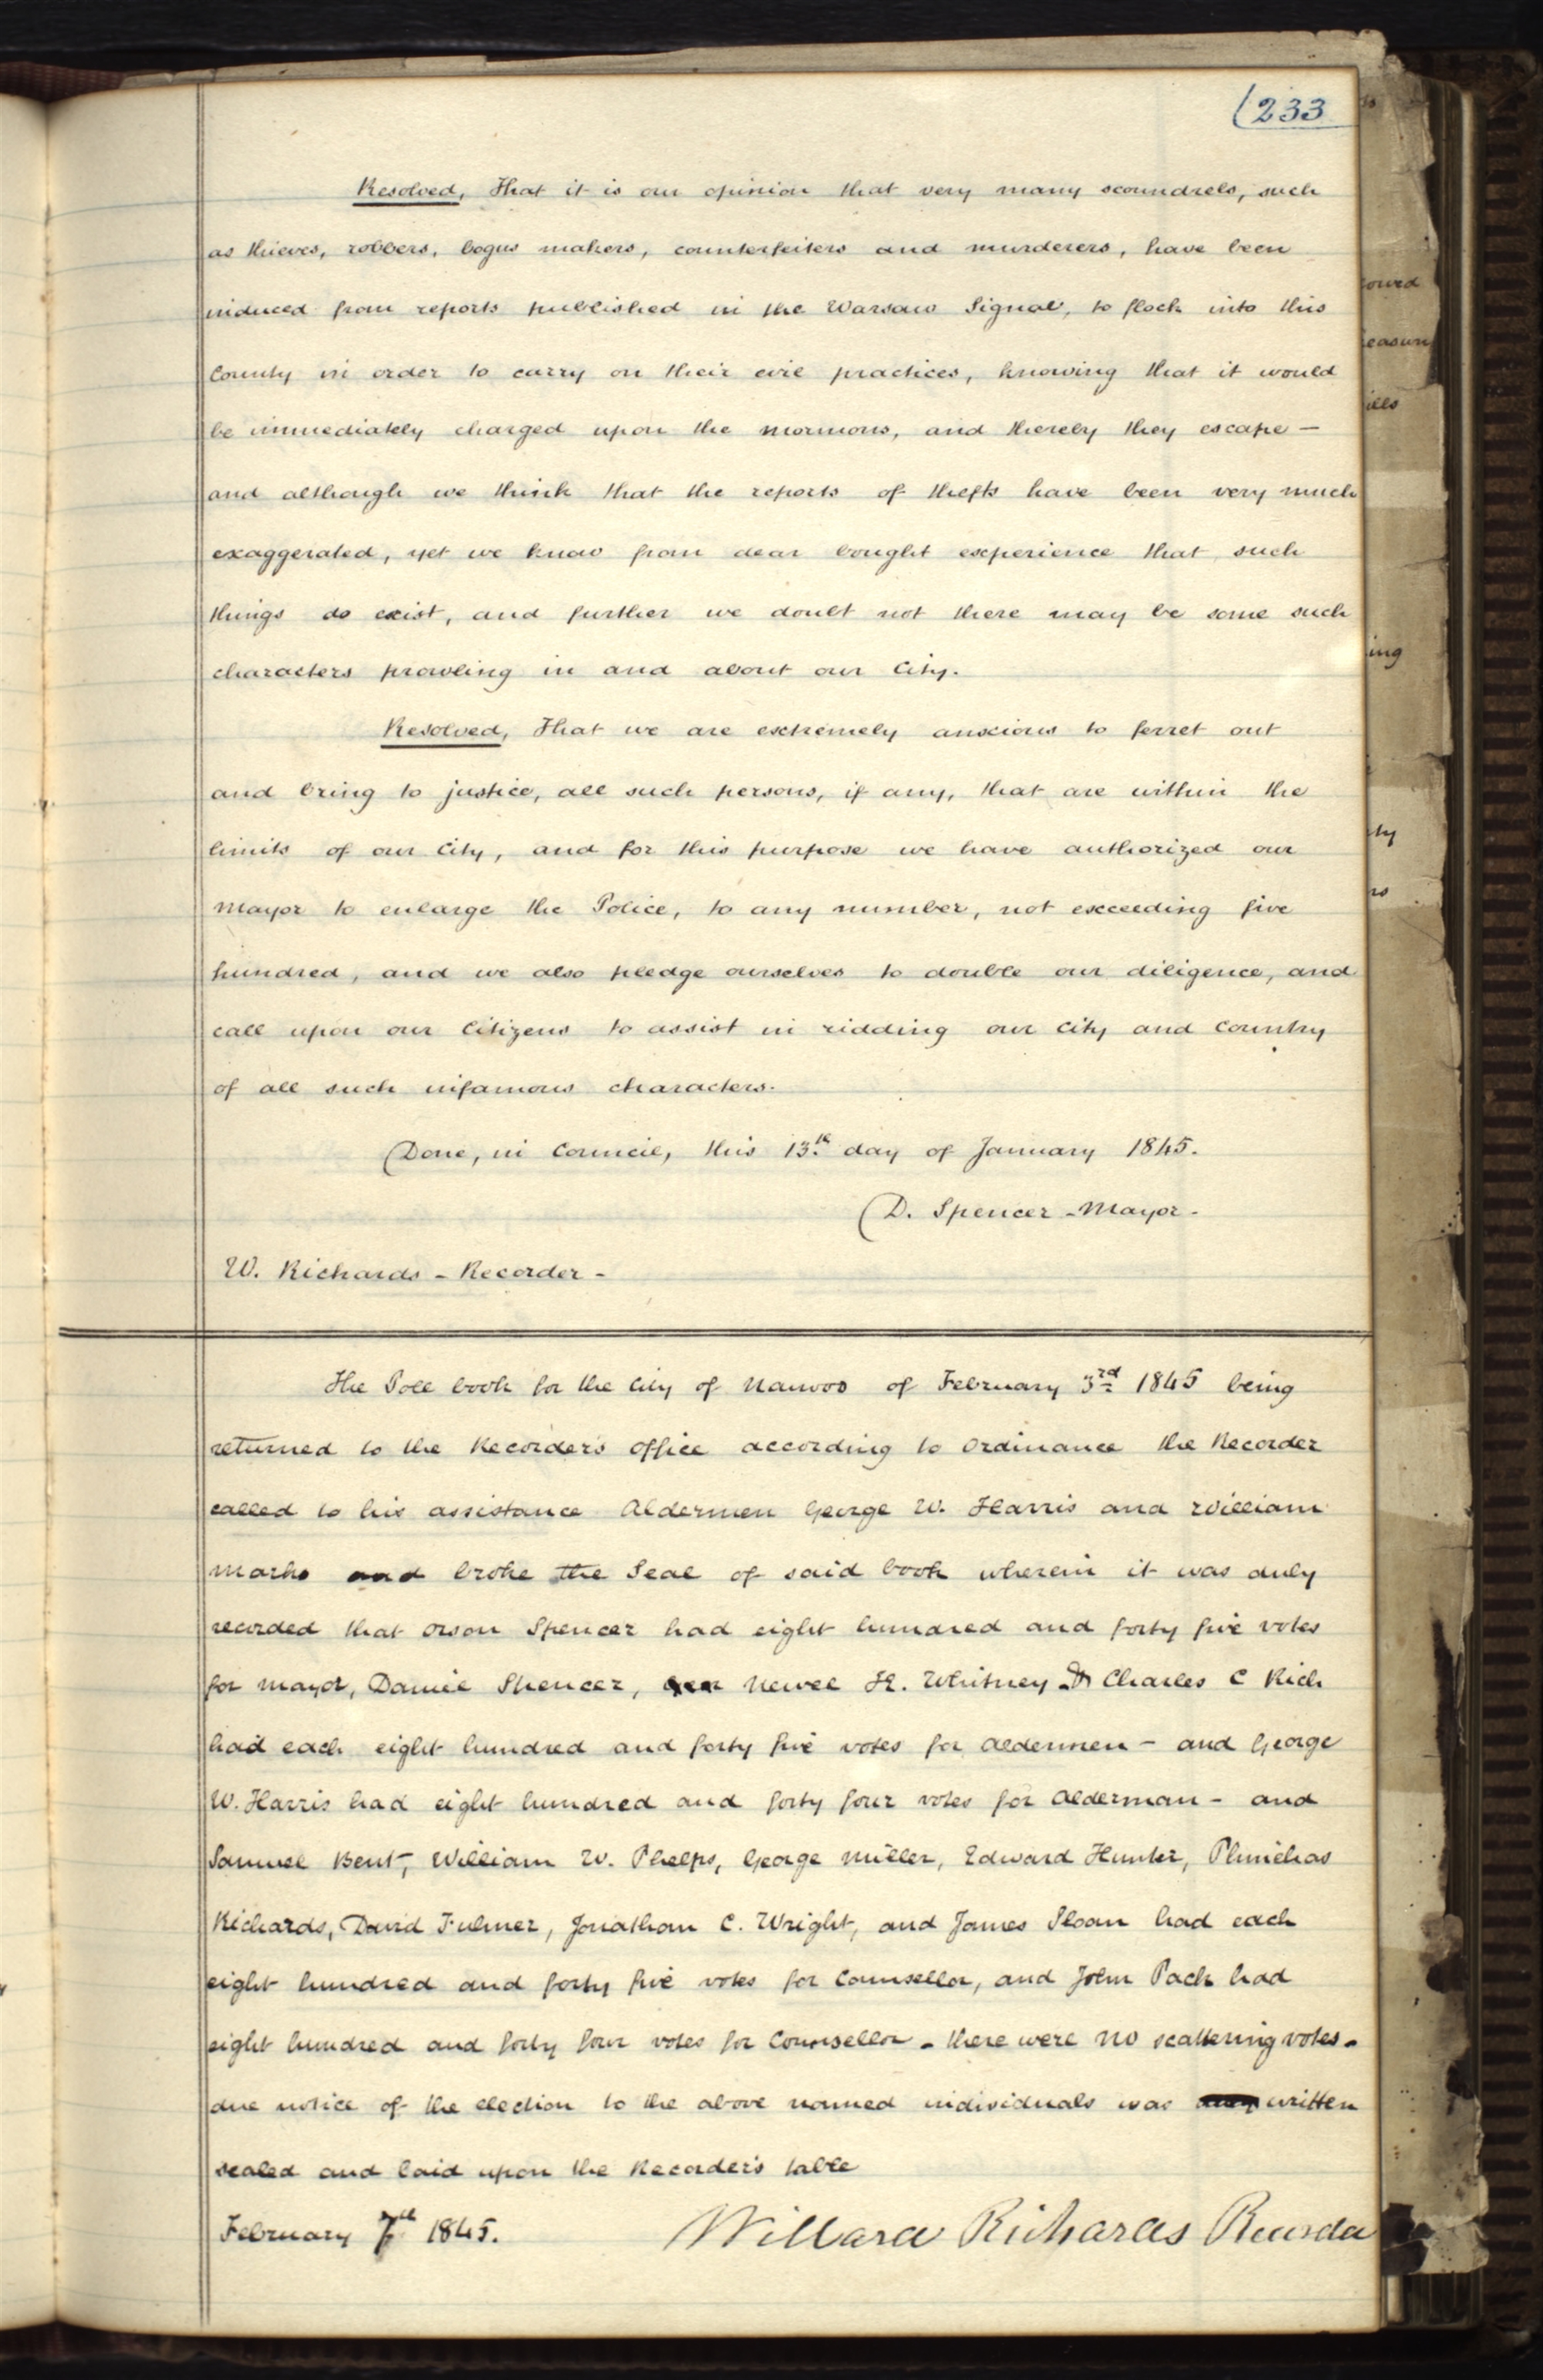 (233
Resolved, That it is our opinion that very many scoundrels, such
as thieves, robbers, bogus makers, counterfeiters and murderers, have been
induced from reports published in the Warsaw Signal, to flock into this
County in order to carry on their evil practices, knowing that it would
be immediately charged upon the mormons, and thereby they escape —
and although we think that the reports of thefts have been very much
exaggerated, yet we know from dear bought experience that such
things do exist, and further we doubt not there may be some such
characters prowling in and about our City.
Resolved, That we are extremely anxious to ferret out
and bring to justice, all such persons, if any, that are within the
limits of our City, and for this purpose we have authorized our
Mayor to enlarge the Police, to any number, not exceeding five
hundred, and we also pledge ourselves to double our diligence, and
call upon our Citizens to assist in ridding our City and Country
of all such infamous characters.
Done, in Council, this 13th. day of January 1845.
D. Spencer - Mayor -
W. Richards - Recorder -
The Poll book for the City of Nauvoo of February 3rd 1845 being
returned to the Recorder's office according to Ordinance the Recorder
called to his assistance Aldermen George W. Harris and William
Marks and broke the Seal of said book wherein it was duly
recorded that Orson Spencer had eight hundred and forty five votes
for Mayor, Daniel Spencer, Newel K. Whitney & Charles C Rich
had each eight hundred and forty five votes for Aldermen - and George
W. Harris had eight hundred and forty four votes for Alderman - and
Samuel Bent, William W. Phelps, George Miller, Edward Hunter, Phinehas
Richards, David Fulmer, Jonathan C. Wright, and James Sloan had each
eight hundred and forty five votes for Counsellor, and John Pack had
eight hundred and forty four votes for Counsellor - there were no scattering votes -
due notice of the election to the above named individuals was written
sealed and laid upon the Recorder's table
February 7th 1845. Willard Richards Recorder
ound
easure
ills
ing
ty
rs